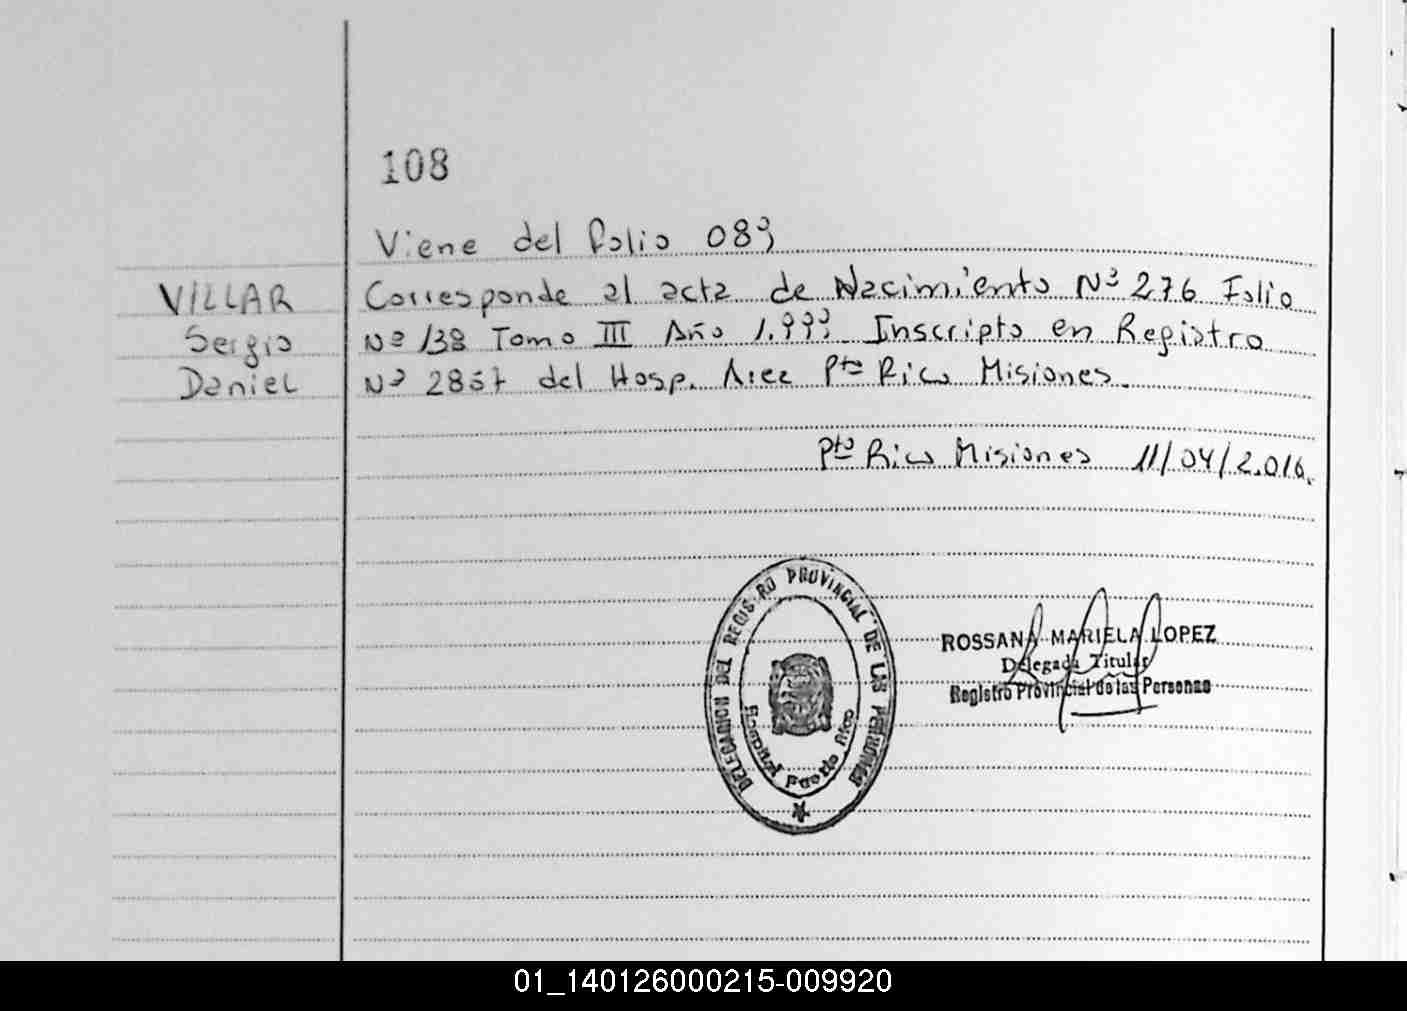 108
Viene del folio 089
VILLAR
Sergio
Daniel
Corresponde al acta de Nacimiento Nº 276 Folio
Nº 138 Tomo III Año 1.999 Inscripto en Registro
Nº 2857 del Hosp. Area Pto Rico Misiones.
Pto Rico Misiones 11/04/2.016.
DELEGACION DEL REGISTRO PROVINCIAL DE LAS PERSONAS
Hospital Puerto Rico
ROSSANA MARIELA LOPEZ
Delegada Titular
Registro Provincial de las Personas
01_140126000215-009920